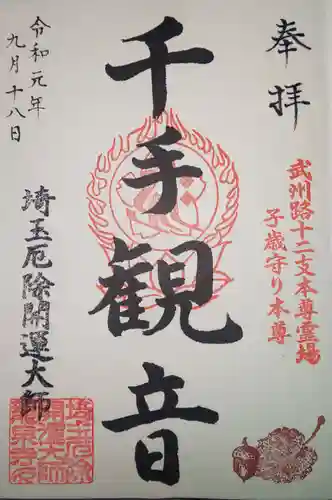 奉拝
武州路十二支本尊霊場
子歳守り本尊
千手観音
令和元年
九月十八日
埼玉厄除開運大師